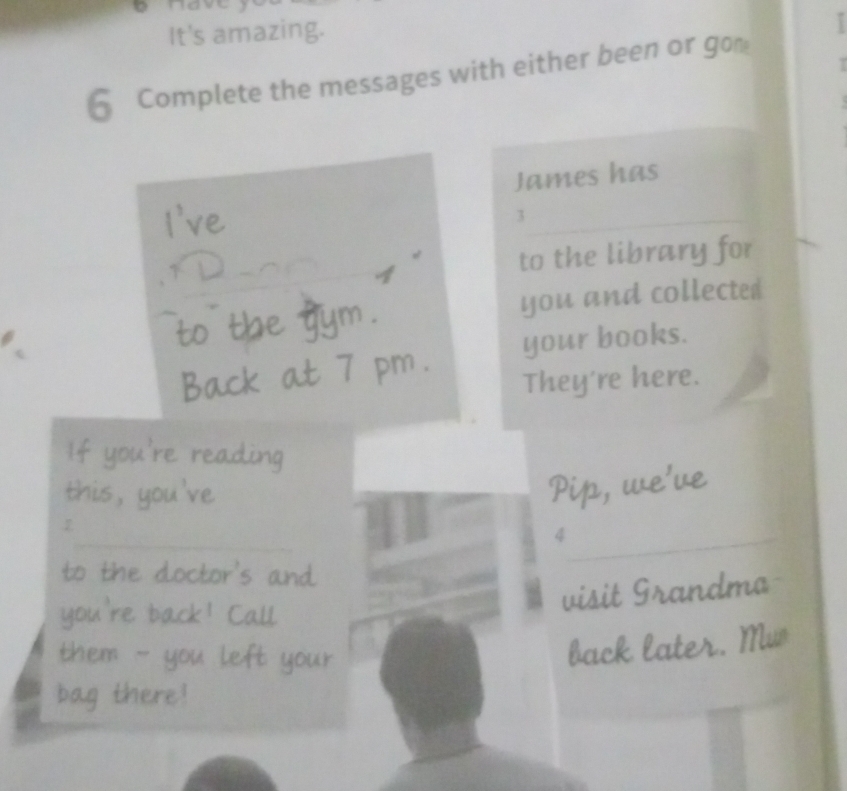 It's amazing.
6 Complete the messages with either been or gone
I've
to the gym.
Back at 7 pm.
James has
3
to the library for
you and collected
your books.
They're here.
If you're reading
this, you've
2
to the doctor's and
you're back! Call
them - you left your
bag there!
Pip, we've
4
visit Grandma
back later. Mum